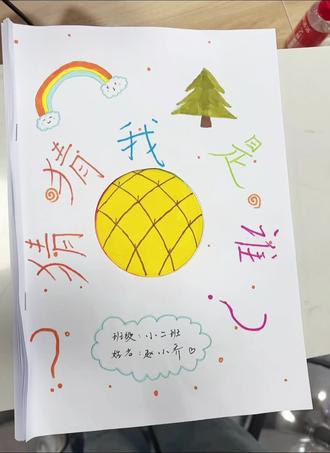 ?猜猜我是谁?
班级：小二班
姓名：赵小乔♡